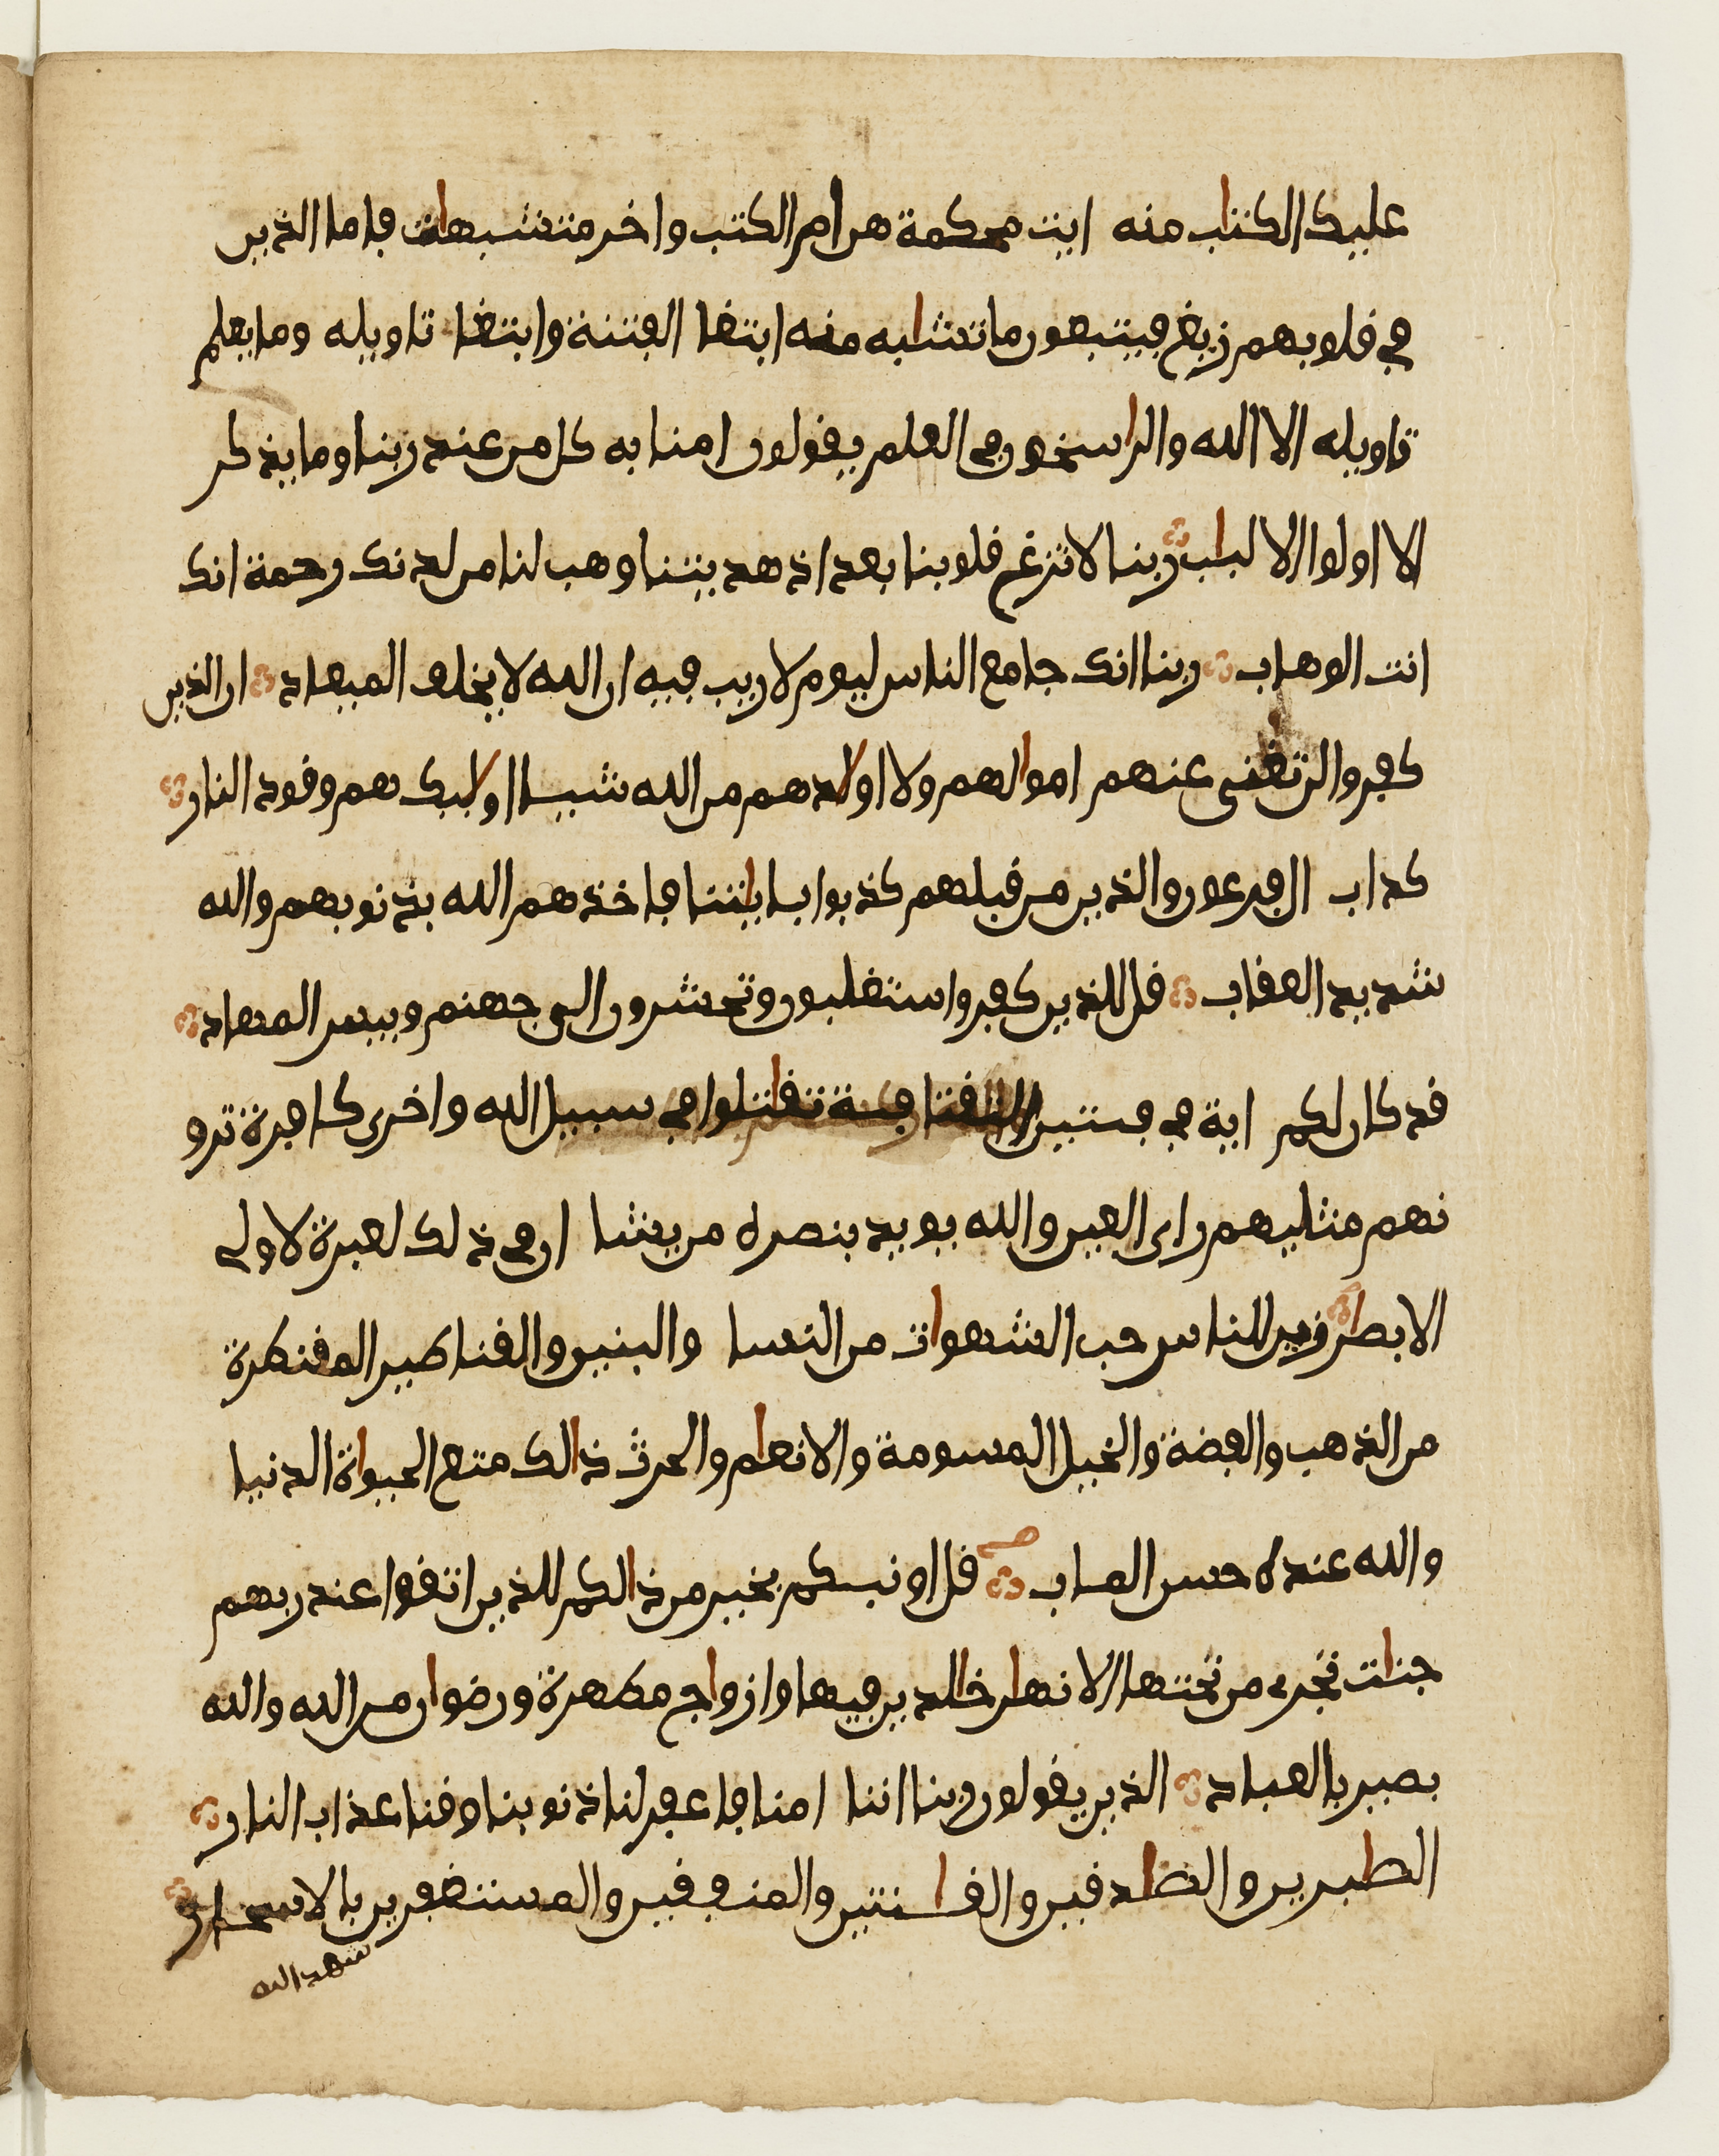 عليك الكتاب منه ايت محكمة هن ام الكتب واخر متشبهات فاما الذين
في قلوبهم زيغ فيتبعون ما تشابه منه ابتغا الفتنة وابتغا تاويله وما يعلم
تاويله الا الله والراسخون في العلم يقولون امنا به كل من عند ربنا وما يذكر
الا اولوا الالباب ربنا لا تزغ قلوبنا بعد اذ هديتنا وهب لنا من لدنك رحمة انك
انت الوهاب ربنا انك جامع الناس ليوم لا ريب فيه ان الله لا يخلف الميعاد ان الذين
كفروا لن تغنى عنهم اموالهم ولا اولادهم من الله شيا اولايك هم وقود النار
كداب ال فرعون والذين من قبلهم كذبوا باياتنا فاخذهم الله بذنوبهم والله
شديد العقاب قل للذين كفروا ستغلبون وتحشرون الى جهنم وبيس المهاد
قد كان لكم اية في فيتين التقتا فية تقاتلوا في سبيل الله واخرى كافرة ترو
نهم مثليهم راى العين والله يويد بنصره من يشا ان في ذلك لعبرة لاولى
الابصار زين للناس حب الشهوات من النسا والبنين والقناطير المقنطرة
من الذهب والفضة والخيل المسومة والانعام والحرث ذالك متع الحيواة الدنيا
والله عنده حسن الماب قل اونبيكم بخير من ذالكم للذين اتقوا عند ربهم
جنات تجرى من تحتها الانهار خالدين فيها وازواج مطهرة ورضوان من الله والله
بصير بالعباد الذين يقولون ربنا اننا امنا فاغفر لنا ذنوبنا وقنا عذاب النار
الصابرين والصادقين والقانتين والمنفقين والمستغفرين بالاسحار
شهد الله